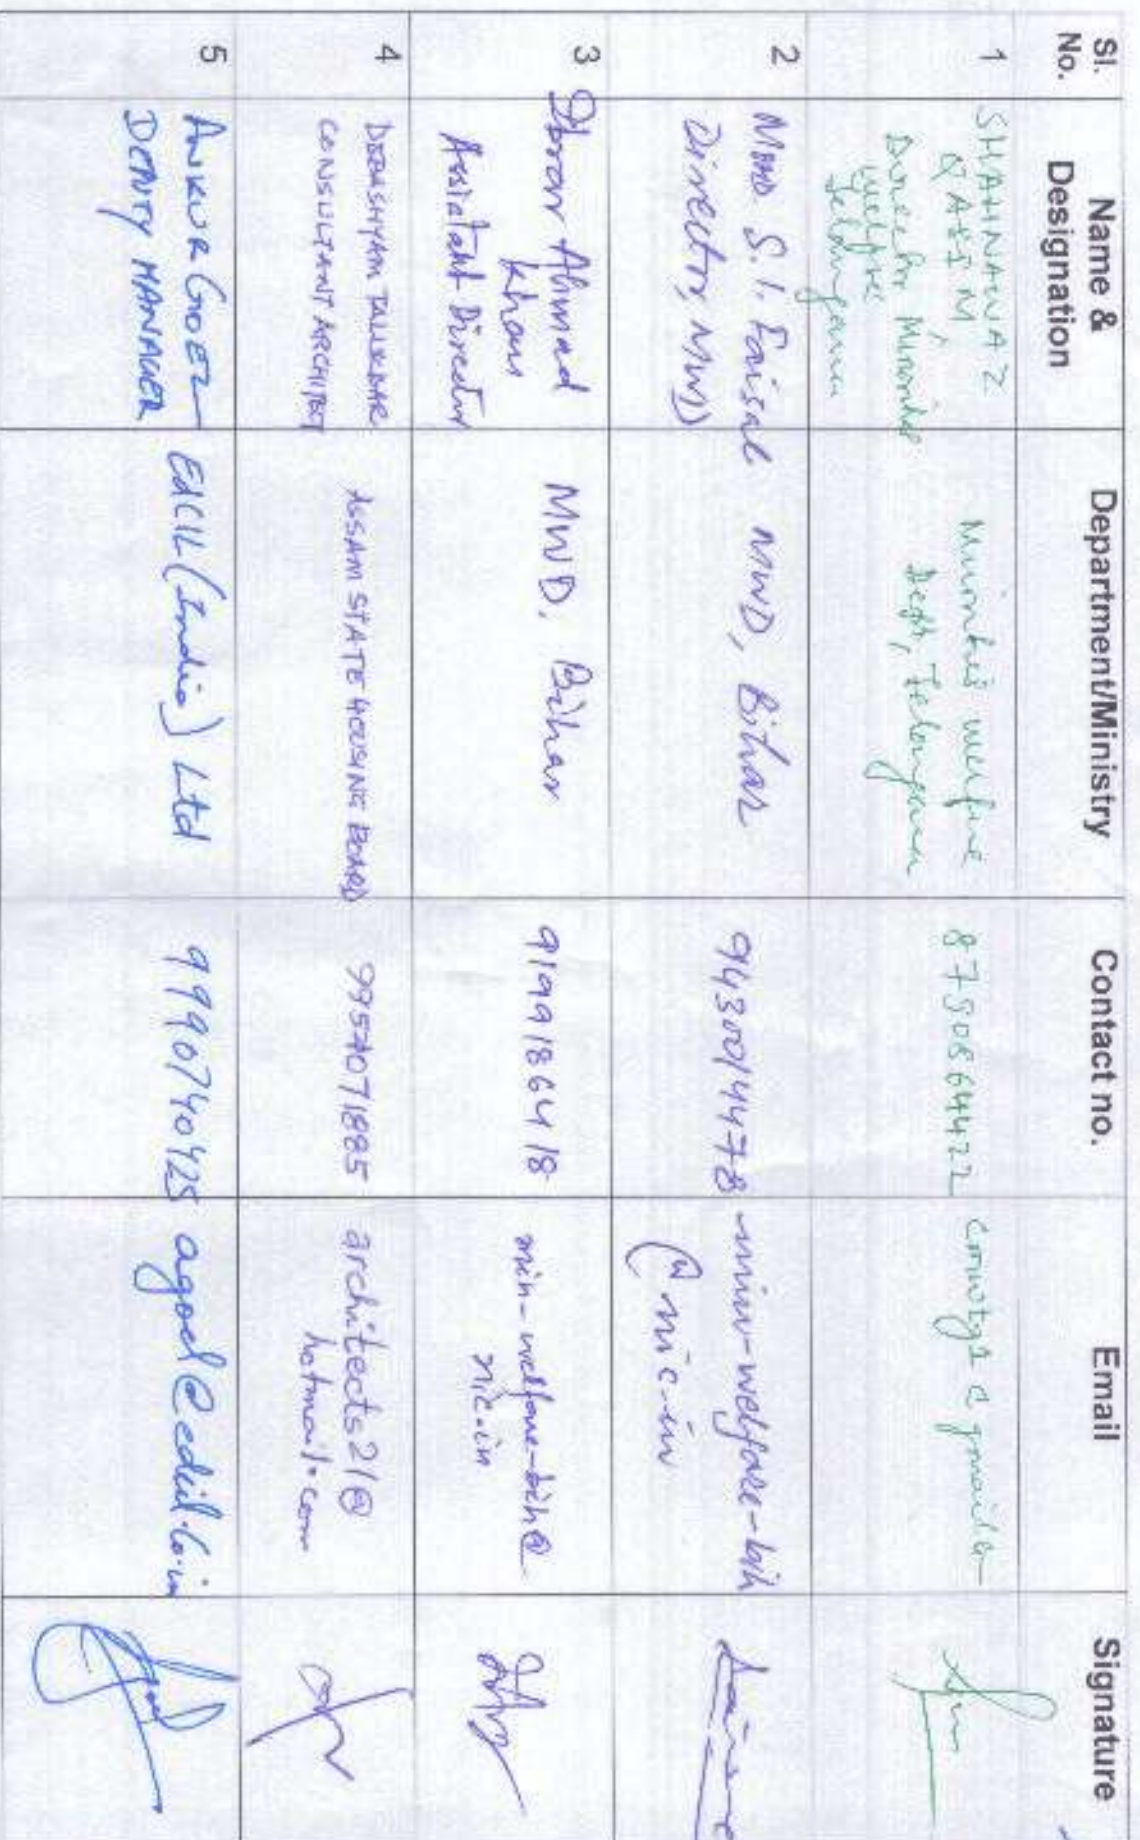 Sl. No. Name & Designation Department/Ministry Contact no. Email Signature
1 SHAHNAWAZ QASIM, Director Minorities welfare Telangana
Minorities welfare Dept, Telangana
2 Mohd S. I. Faisal Director, MWD
MWD, Bihar
9430014478
min-welfare-bih @nic.in
3 Ibrar Ahmad Khan Assistant Director
MWD, Bihar
9199186418
min-welfare-bih@ nic.in
4 DEBASHYAM TALUKDAR CONSULTANT ARCHITECT
ASSAM STATE HOUSING BOARD
9954071885
architects21@ hotmail.com
5 ANKUR GOEL DEPUTY MANAGER
EdCIL (India) Ltd
9990740425
agoel@edcil.co.in